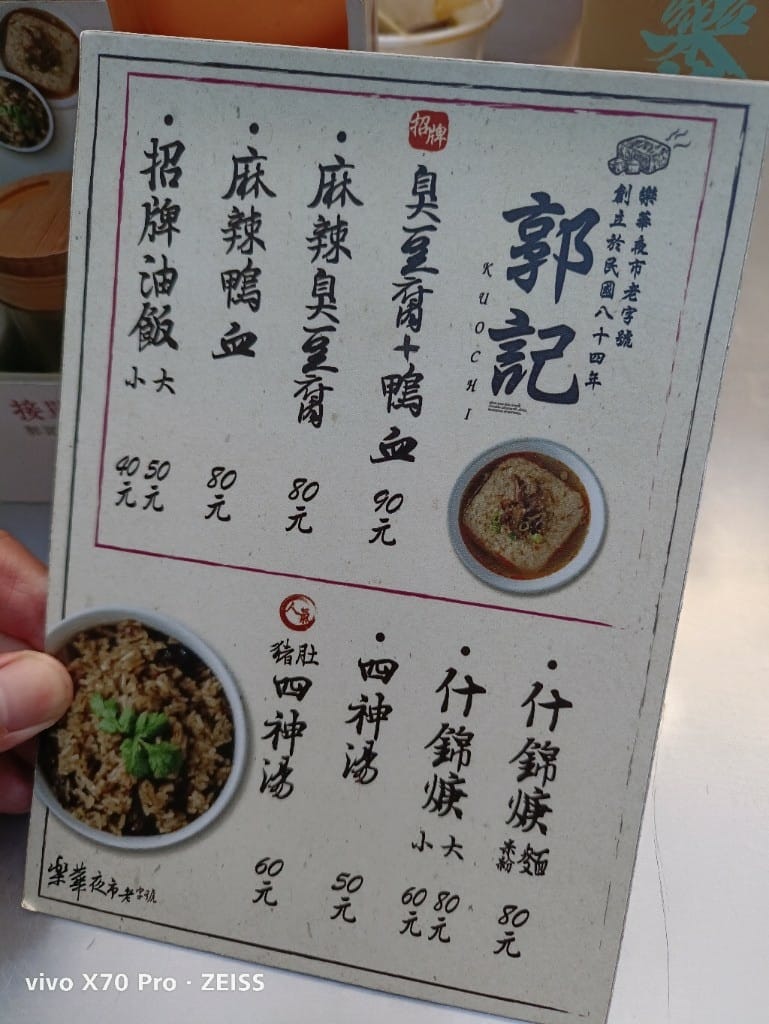 樂華夜市老字號
創立於民國八十四年
郭記
KUO CHI
招牌
臭豆腐+鴨血
90元
麻辣臭豆腐
80元
麻辣鴨血
80元
招牌油飯
大
小
50元
40元
什錦焿
麵
米粉
80元
什錦焿
大
小
80元
60元
四神湯
50元
人氣
豬肚
四神湯
60元
樂華夜市老字號
vivo X70 Pro · ZEISS